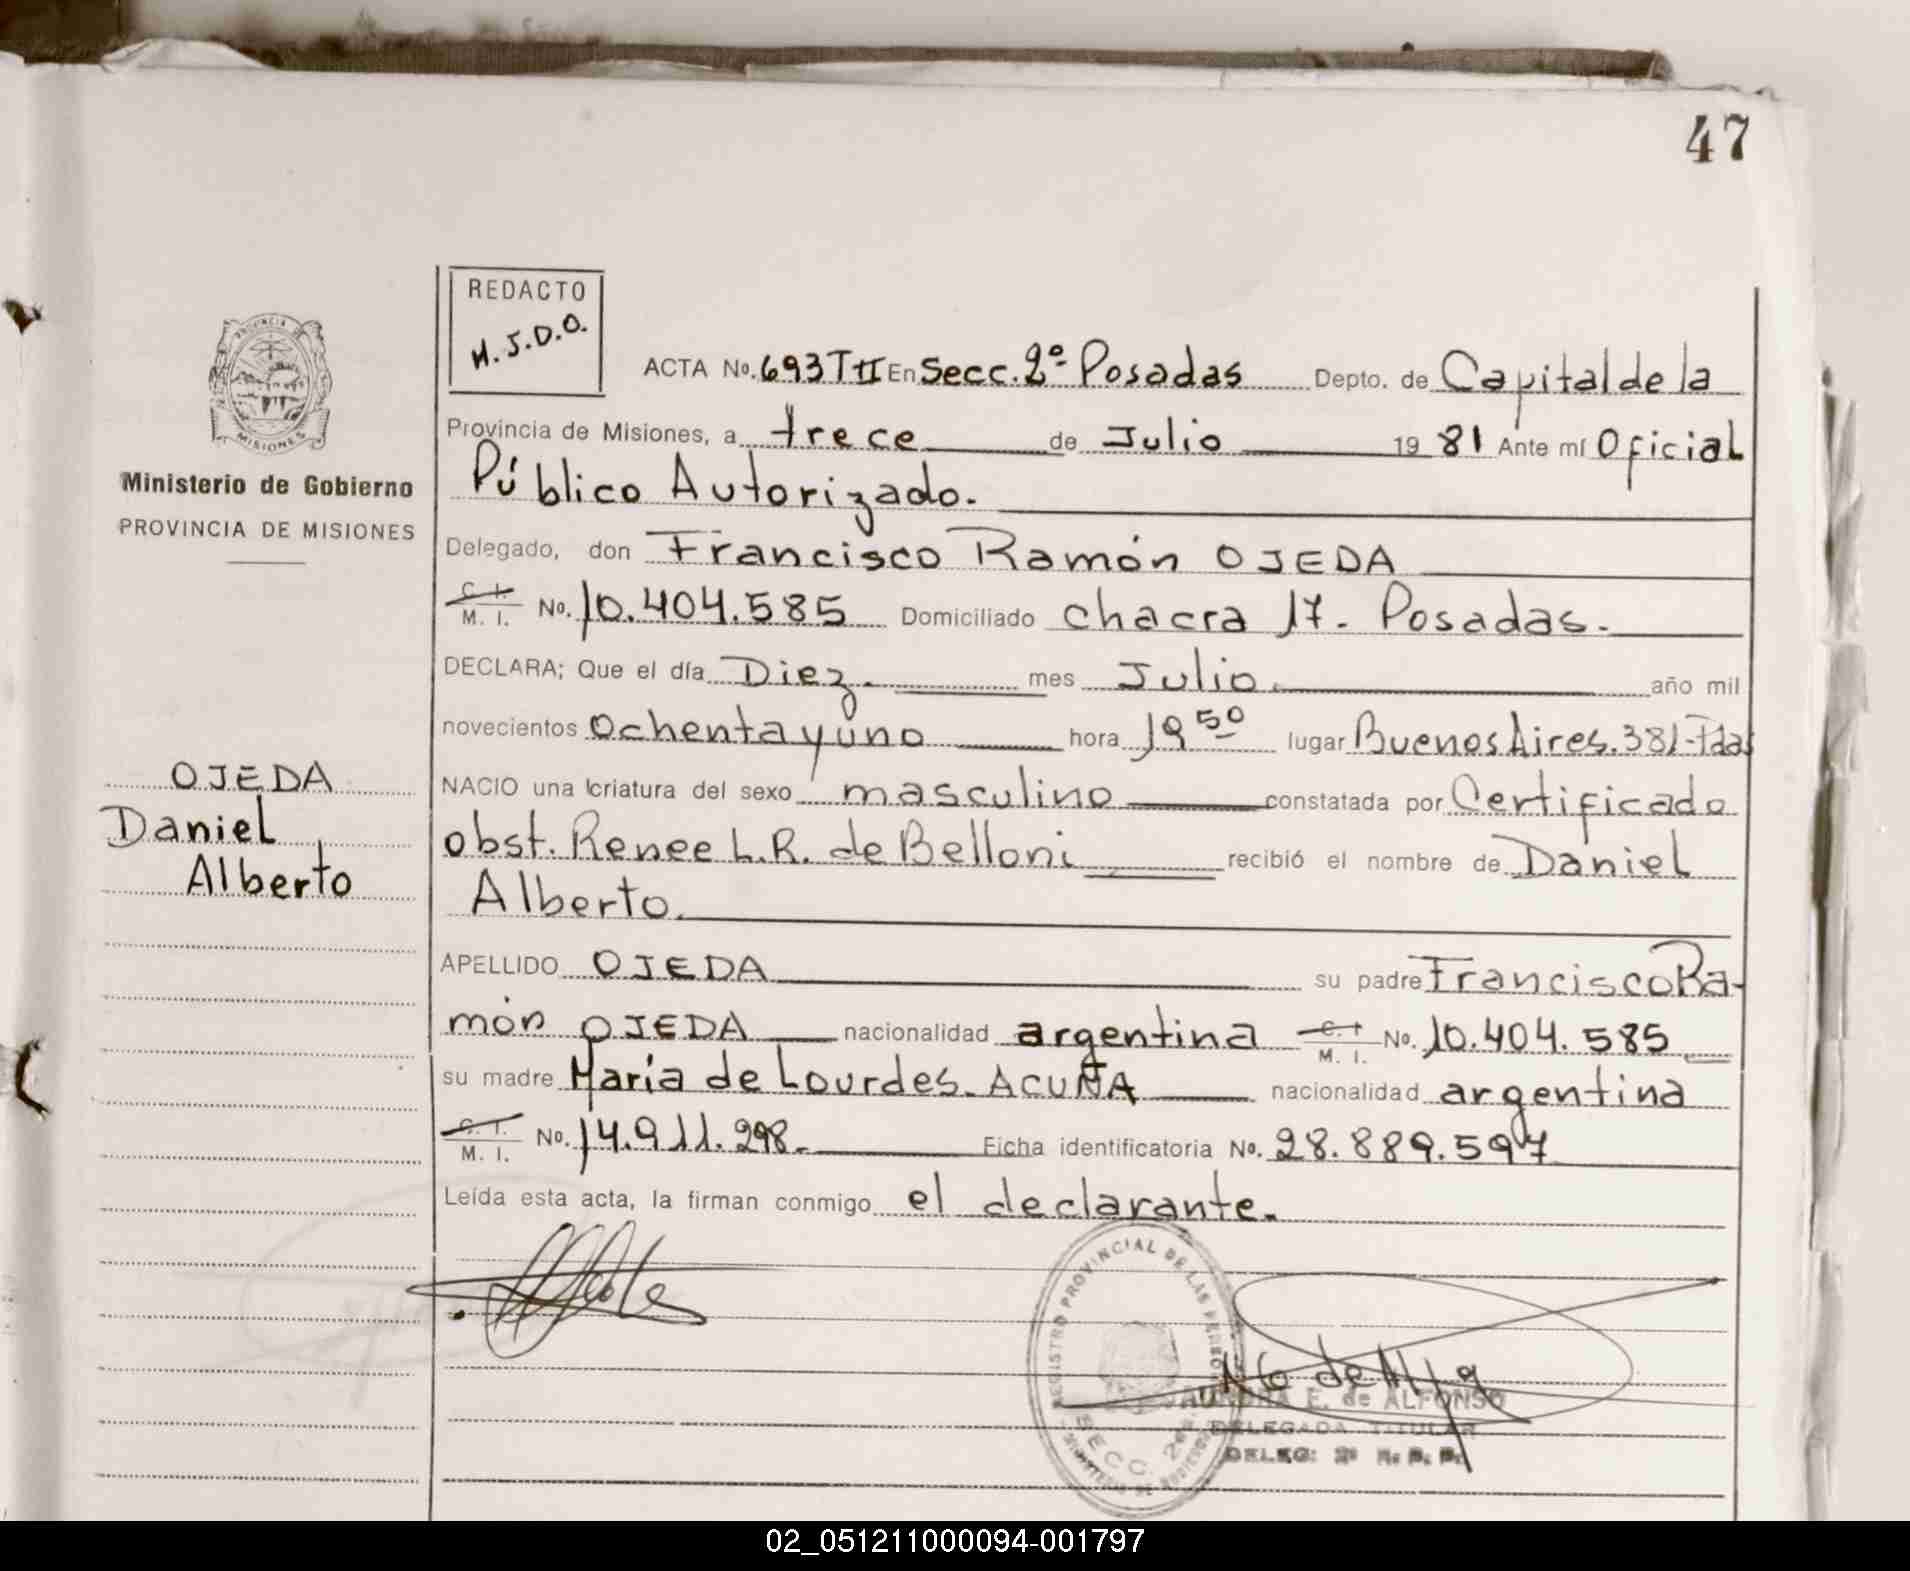 47
REDACTO
H. J. D. O.
PROVINCIA DE
MISIONES
Ministerio de Gobierno
PROVINCIA DE MISIONES
OJEDA
Daniel
Alberto
ACTA No. 693 T II En Secc. 2º Posadas Depto. de Capital de la
Provincia de Misiones, a trece de Julio 19 81 Ante mí Oficial
Público Autorizado.
Delegado, don Francisco Ramón OJEDA
C. I. M. I. No. 10.404.585 Domiciliado chacra 17. Posadas.
DECLARA; Que el día Diez. mes Julio. año mil
novecientos Ochenta y uno hora 19 50 lugar Buenos Aires. 381-Pdas
NACIO una criatura del sexo masculino constatada por Certificado
obst. Renee L. R. de Belloni recibió el nombre de Daniel
Alberto.
APELLIDO OJEDA su padre Francisco Ra-
món OJEDA nacionalidad argentina C. I. M. I. No. 10.404.585
su madre María de Lourdes. ACUÑA nacionalidad argentina
C. I. M. I. No. 14.911.298. Ficha identificatoria No. 28.889.597
Leída esta acta, la firman conmigo el declarante.
REGISTRO PROVINCIAL DE LAS PERSO
SECC. 2da.
E. de ALFONSO
DELEGADA TITULAR
DELEG: 2ª R. P. P.
02_051211000094-001797